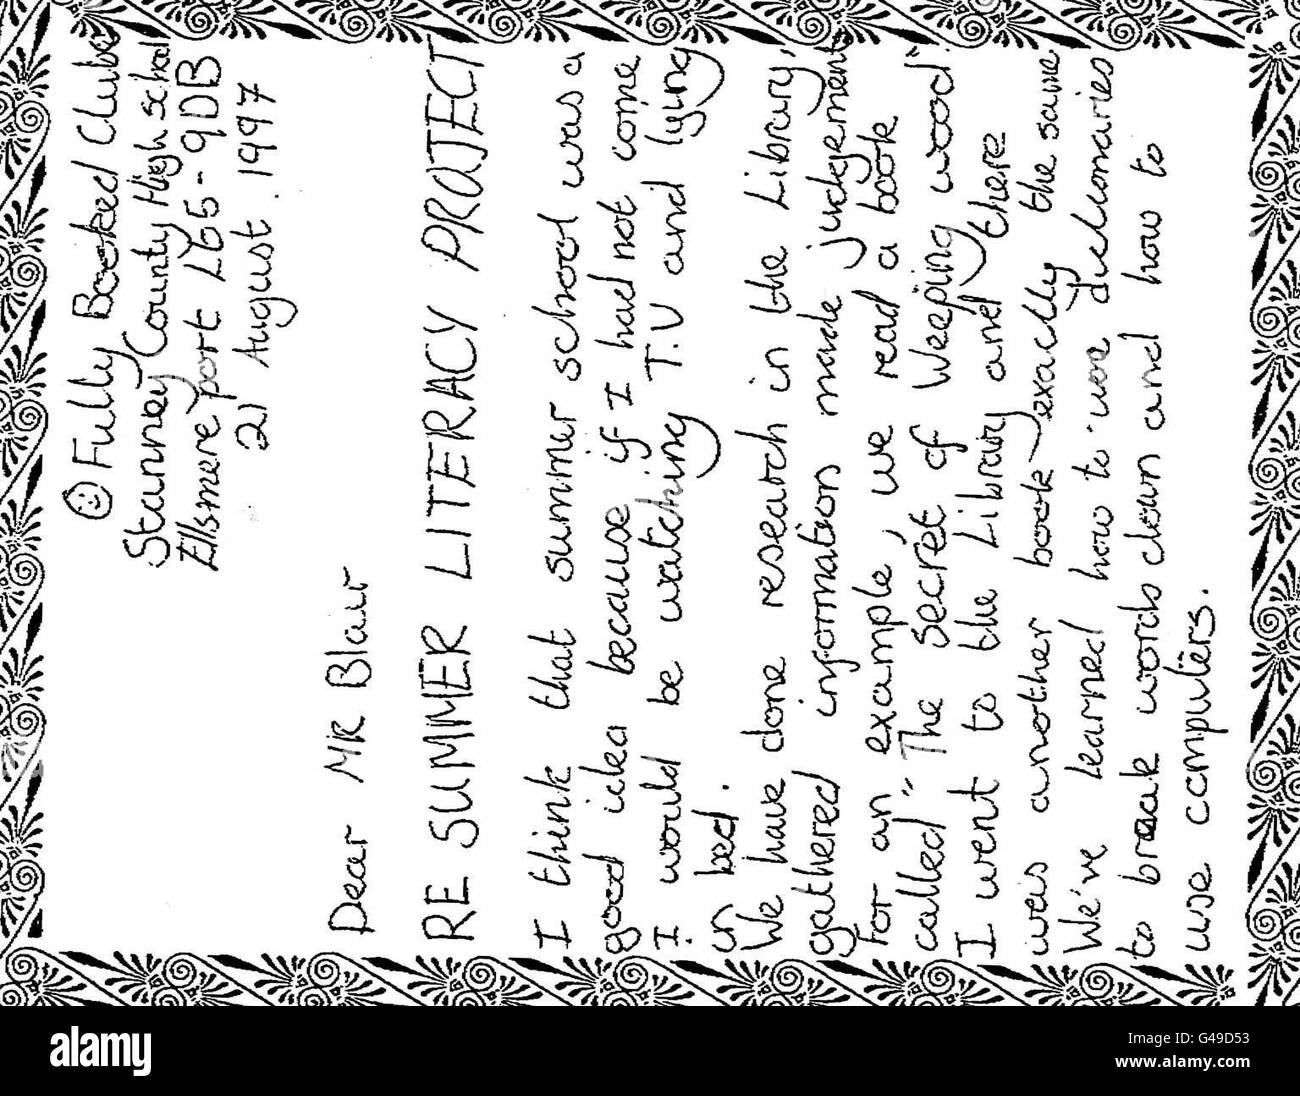 Fully Booked Club
Stanney County High School
Ellsmere port L65-9DB
21 August 1997
Dear MR Blair
RE SUMMER LITERACY PROJECT
I think that summer school was a
good idea because if I had not come
I would be watching T.V and lying
in bed.
We have done research in the Library,
gathered information made judgements
For an example, we read a book
called "The Secret of Weeping wood".
I went to the Library and there
was another book exactly the same
We've Learned how to use dictionaries
to break words down and how to
use computers.
alamy
Image ID: G49D53
www.alamy.com